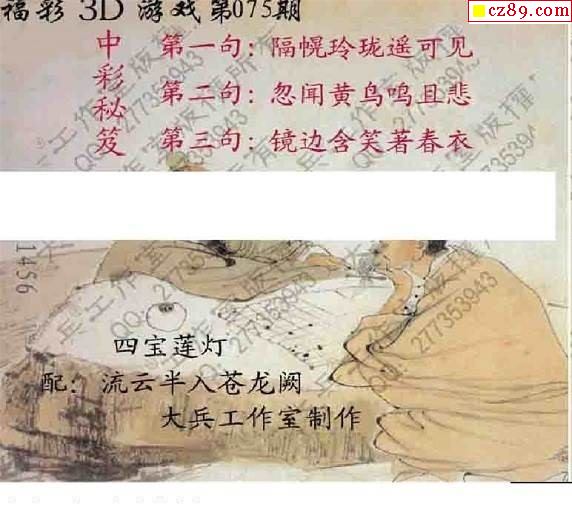 福彩 3D 游戏第075期
cz89.com
中彩秘笈
第一句: 隔幌玲珑遥可见
第二句: 忽闻黄鸟鸣且悲
第三句: 镜边含笑著春衣
大兵工作室版权所有
QQ:277353943
1456
四宝莲灯
配: 流云半入苍龙阙
大兵工作室制作